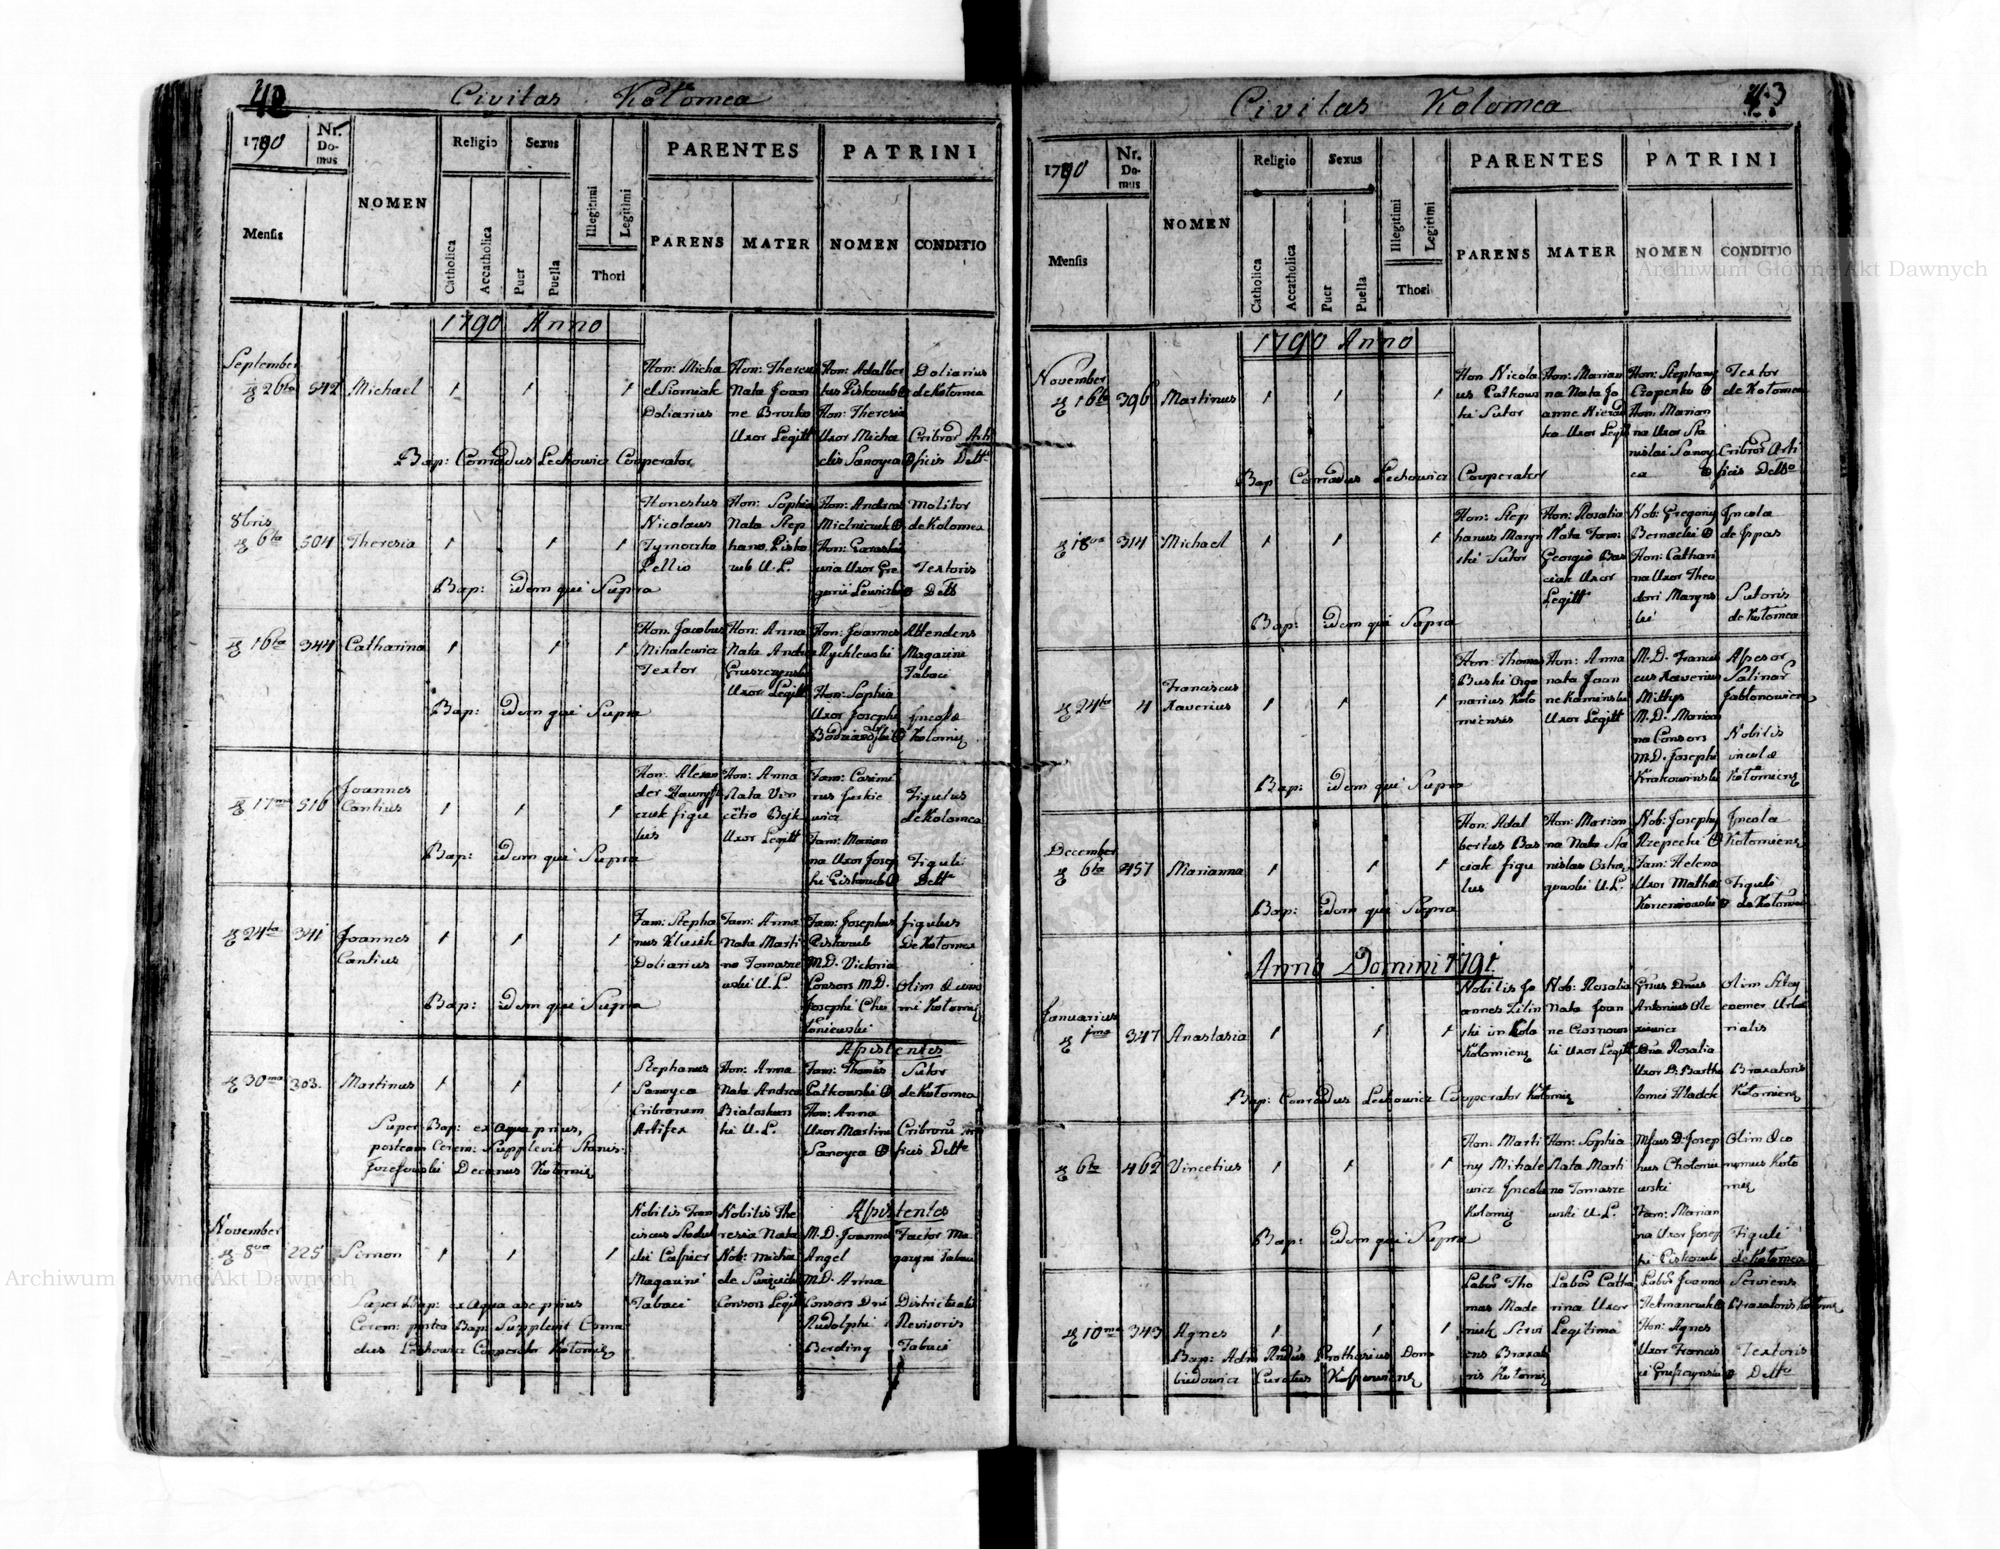 42
Civitas Kołomea
1790
Nr. Domus
NOMEN
Religio
Sexus
PARENTES
PATRINI
Mensis
Catholica
Accatholica
Puer
Puella
Illegitimi
Legitimi
Thori
PARENS
MATER
NOMEN
CONDITIO
1790 Anno
September
26ta 542 Michael 1 1 1
Hon: Micha
el Siomiak
Doliarius
Hon: Theresia
Nata Joan
ne Brozko
Uxor Legitt
Hon: Adalber
tus Piskozub
Hon: Theresia
Uxor Micha
elis Sanoyca
Doliarius
de Kołomea
Cribror Arti
ficis Dettо
Bap: Conradus Lechowicz Cooperator
8bris
6ta 504 Theresia 1 1 1
Honestus
Nicolaus
Tymoczko
Pellio
Hon: Sophia
Nata Step
hano Pisko
zub U. L.
Hon: Andreas
Mielniczuk
Hon: Paraske
wia Uxor Gre
gorii Lewicki
Molitor
de Kolomea
Textoris
Detto
Bap: idem qui Supra
16ta 344 Catharina 1 1 1
Hon. Jacobus
Mihalewicz
Textor
Hon: Anna
Nata Andrea
Gruszczynski
Uxor Legitt
Hon: Joannes
Rychlewski
Hon: Sophia
Uxor Josephi
Attendens
Magazini
Tabaci
Incolæ
Kolomiens
Bap: idem qui Supra
17ma 516 Joannes
Cantius 1 1 1
Hon: Alexan
der Hawrysz
czuk figu
lus
Hon: Anna
Nata Vin
cētio Bejk
Uxor Legitt
Fam: Casimi
rus Jurkie
wicz
Fam: Marian
na Uxor Josep
hi Piskozub
Figulus
de Kolomea
Figuli
Detto
Bap: idem qui Supra
24ta 341 Joannes
Cantius 1 1 1
Fam: Stepha
nus Klusik
Doliarius
Fam: Anna
Nata Marti
no Tomasze
wski U. L.
Fam: Josephus
Piskozub
M.D. Victoria
Consors M.D.
Josephi Cho
łoniewski
figulus
De Kołomea
Olim Œcono
mi Kołomiens
Bap: idem qui Supra
30ma 303. Martinus 1 1 1
Stephanus
Sanoyca
Cribrorum
Artifex
Hon: Anna
Nata Andrea
Białoskurs
ki U. L.
Assistentes
Fam: Thomas
Patkowski
Hon: Anna
Uxor Martini
Sanoyca
Sutor
de Kołomea
Cribrorū Arti
ficis Detto
Super Bap: ex Aqua prius,
posteam Cerem: Supplevit Stanis:
Jozefowski Decanus Kołomiens
November
8va 225 Simon 1 1 1
Nobilis Fran
ciscus Stadni
cki Cassier
Magazini
Tabaci
Nobilis The
ressia Nata
Nob: Micha
Consors Legitt
Assistentes
M.D. Joannes
Angel
M.D. Anna
Consors Dni
Rudolphi
Berding
Factor Ma
gazyni Tabaci
Districtualis
Revisoris
Tabaci
Super Bap: ex Aqua
Cerem: postea Bap: Supplevit Conra
dus Lechowicz Cooperator Kołomiens
43
Civitas Kolomea
1790
Nr. Domus
NOMEN
Religio
Sexus
PARENTES
PATRINI
Mensis
Catholica
Accatholica
Puer
Puella
Illegitimi
Legitimi
Thori
PARENS
MATER
NOMEN
CONDITIO
1790 Anno
November
16ta 396 Martinus 1 1 1
Hon Nicola
us Patkows
ki Sutor
Hon: Marian
na Nata Jo
anne
Uxor Legitt
Hon: Stephany
Czopenko
Hon: Marian
na Uxor Sta
nislai Sanoy
ca
Textor
de Kołomea
Cribror Arti
ficis Detto
Bap: Conradus Lechowicz Cooperator
18va 314 Michael 1 1 1
Hon: Step
hanus Maryn
ski Sutor
Hon: Rosalia
Nata Fam:
Georgio Bas
ciak Uxor
Legitt
Nob: Gregoriy
Bernacki
Hon: Cathari
na Uxor Theo
dori Maryns
ki
Incola
de Ispas
Sutoris
de Kołomea
Bap: idem qui Supra
24ta 4 Franciscus
Xaverius 1 1 1
Hon: Thomas
Buski Orga
narius Koło
miensis
Hon: Anna
nata Joan
ne Kaminski
Uxor Legitt
M.D. Francis
cus Xaverius
Mittys
M.D. Marian
na Consors
M.D. Josephi
Krakowinski
Assesor
Salinar
Jabłonowiens
Nobilis
incolæ
Kołomiens
Bap: idem qui Supra
December
6ta 457 Marianna 1 1 1
Hon: Adal
bertus Bas
ciak figu
lus
Hon: Marian
na Nata Sta
nislao Ostro
gowski U. L.
Nob: Josephy
Rzepecki
Fam: Helena
Uxor Mathei
Korzeniowski
Incola
Kołomiens
Figuli
de Kołomea
Bap: idem qui Supra
Anno Domini 1791
Januarius
1ma 347 Anastasia 1 1 1
Nobilis Jo
annes Zilin
ski in Kolo
Kolomiens
Nob: Rosalia
Nata Joan
ne Czosnows
ki Uxor Legitt
Gnus Dnus
Antonius Ole
xiewicz
Dna Rosalia
Uxor D: Bartho
lomei Hladek
Olim
Braxatoris
Kołomiens
Bap: Conradus Lechowicz Cooperator Kołomiens
6ta 462 Vincetius 1 1 1
Hon: Marti
ny Mihale
wicz Incola
Kolomiens
Hon: Sophia
Nata Marti
no Tomasze
wski U. L.
Mfcus D: Josep
hus Chołonie
wski
Fam: Marian
na Uxor Josep
hi Piskozub
Olim Œco
nomus Koło
miens
Figuli
de Kołomea
Bap: idem qui Supra
10ma 343 Agnes 1 1 1
Labor Tho
mas Made
niuk Servi
ens Braxato
ris Kołomiens
Labor Catha
rina Uxor
Legitima
Labor Joannes
Hetmanczuk
Hon: Agnes
Uxor Francis
ci Gruszczynski
Serviens
Braxatoris Kołomiens
Textoris
Detto
Bap: Adm Rndus Prothasius Dom
biedowicz Curatus
Archiwum Główne Akt Dawnych
Archiwum Główne Akt Dawnych